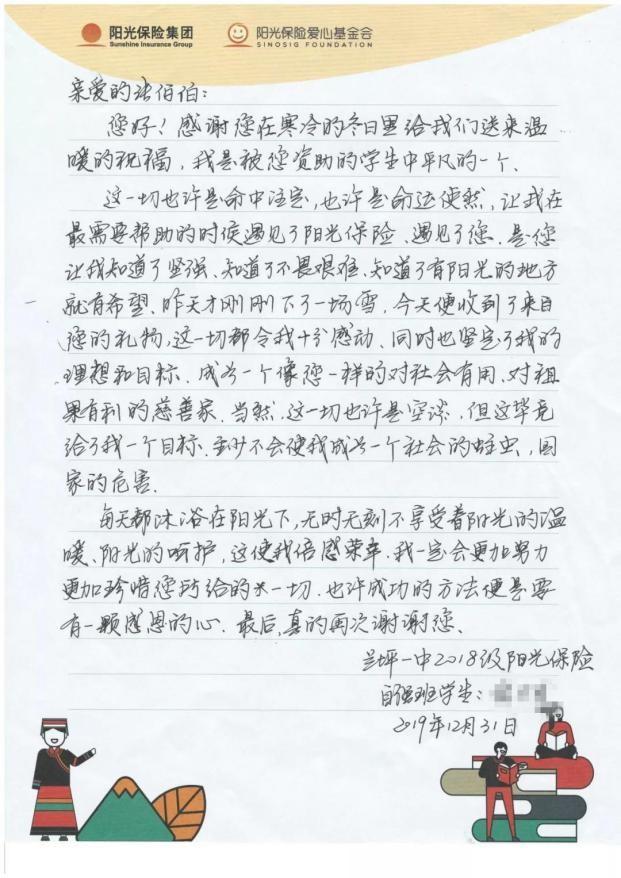 阳光保险集团 阳光保险爱心基金会
Sunshine Insurance Group SINOSIG FOUNDATION
亲爱的张伯伯：
您好！感谢您在寒冷的冬日里给我们送来温
暖的祝福，我是被您资助的学生中平凡的一个、
这一切也许是命中注定，也许是命运使然，让我在
最需要帮助的时候遇见了阳光保险、遇见了您、是您
让我知道了坚强、知道了不畏艰难、知道了有阳光的地方
就有希望、昨天才刚刚下了一场雪，今天便收到了来自
您的礼物，这一切都令我十分感动、同时也坚定了我的
理想和目标、成为一个像您一样的对社会有用、对祖
果有利的慈善家、当然、这一切也许是空谈、但这毕竟
给了我一个目标、至少不会使我成为一个社会的蛀虫，国
家的危害、
每天都沐浴在阳光下，无时无刻不享受着阳光的温
暖、阳光的呵护，这使我倍感荣幸、我一定会更加努力
更加珍惜您所给的一切、也许成功的方法便是要
有一颗感恩的心、最后、真的再次谢谢您、
兰坪一中2018级阳光保险
自强班学生：
2019年12月31日